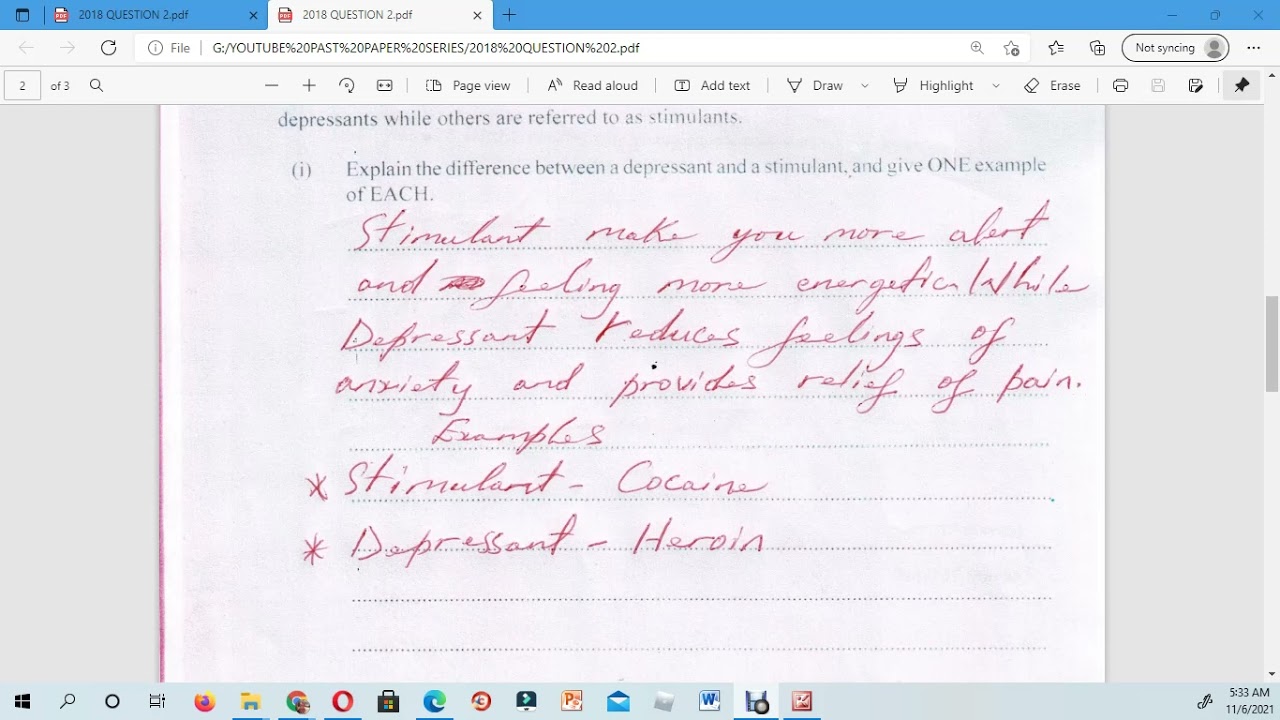 2018 QUESTION 2.pdf
2018 QUESTION 2.pdf
File
G:/YOUTUBE%20PAST%20PAPER%20SERIES/2018%20QUESTION%202.pdf
Not syncing
2 of 3
Page view
Read aloud
Add text
Draw
Highlight
Erase
depressants while others are referred to as stimulants.
(i) Explain the difference between a depressant and a stimulant, and give ONE example
of EACH.
Stimulant make you more alert
and feeling more energetic. While
Depressant reduces feelings of
anxiety and provides relief of pain.
Examples
* Stimulant - Cocaine
* Depressant - Heroin
5:33 AM
11/6/2021